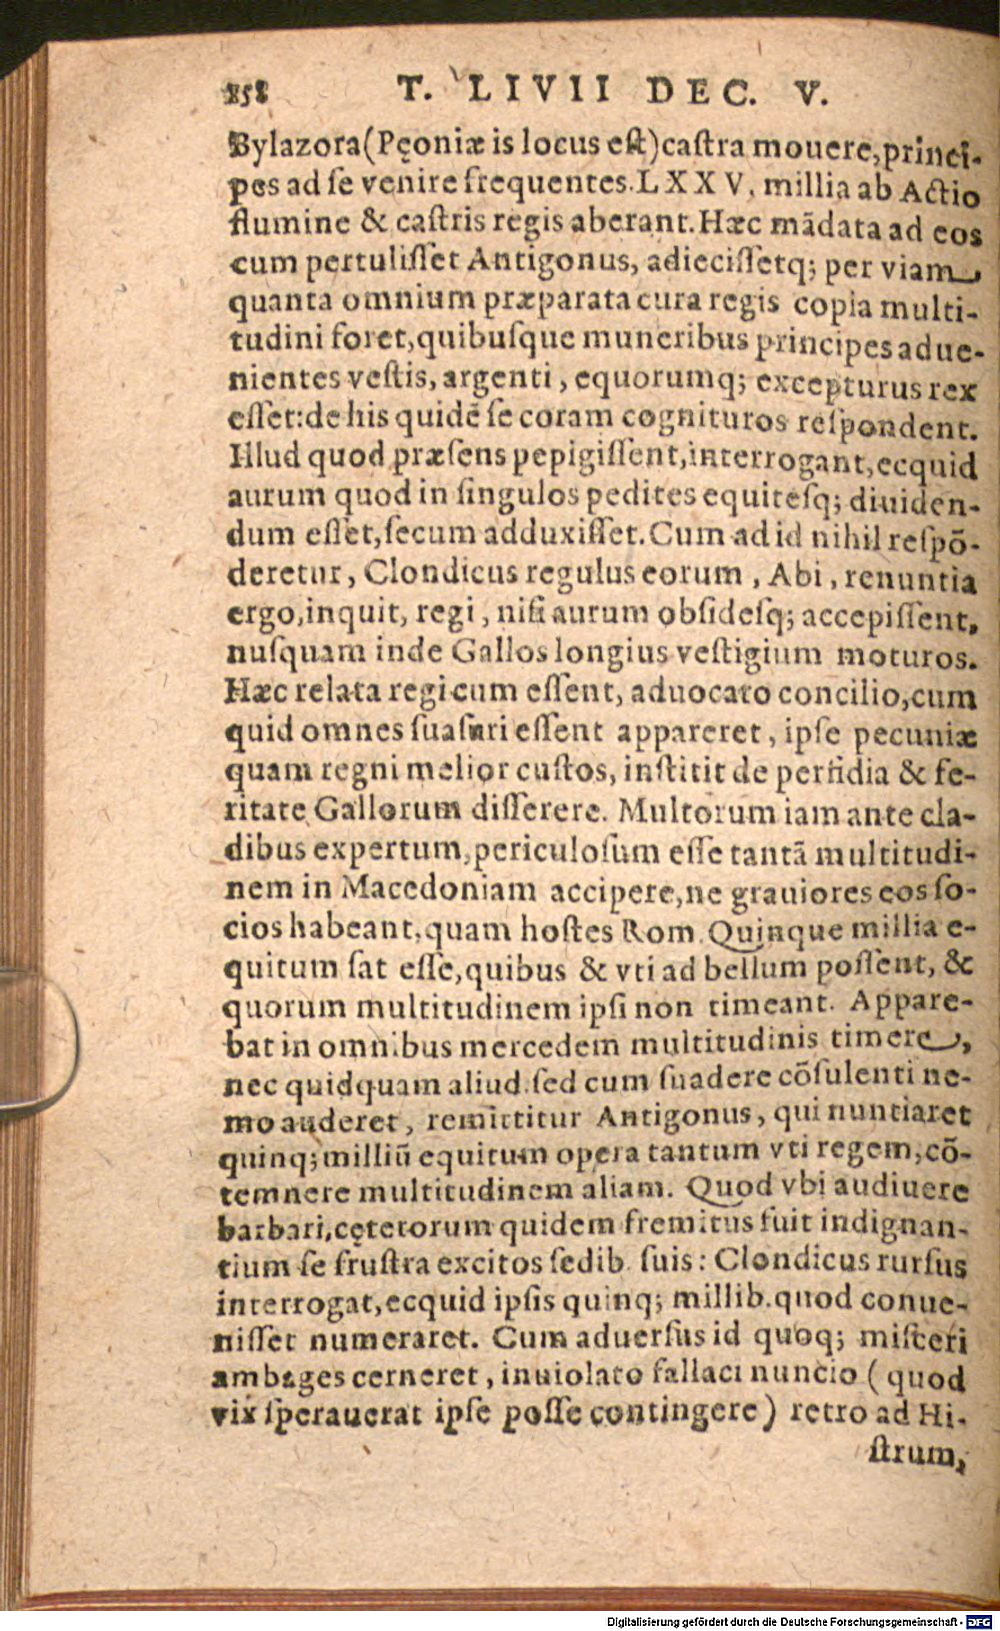 858 T. LIVII DEC. V.
Bylazora (Pęoniæ is locus eſt) caſtra mouere, princi-
pes ad ſe venire frequentes. LXXV. millia ab Actio
flumine & caſtris regis aberant. Hæc mādata ad eos
cum pertuliſſet Antigonus, adieciſſetq; per viam,
quanta omnium præparata cura regis copia multi-
tudini foret, quibuſque muneribus principes adue-
nientes veſtis, argenti, equorumq; excepturus rex
eſſet: de his quidē ſe coram cognituros reſpondent.
Illud quod præſens pepigiſſent, interrogant, ecquid
aurum quod in ſingulos pedites equiteſq; diuiden-
dum eſſet, ſecum adduxiſſet. Cum ad id nihil reſpō-
deretur, Clondicus regulus eorum, Abi, renuntia
ergo, inquit, regi, niſi aurum obſideſq; accepiſſent,
nuſquam inde Gallos longius veſtigium moturos.
Hæc relata regi cum eſſent, aduocato concilio, cum
quid omnes ſuaſuri eſſent appareret, ipſe pecuniæ
quam regni melior cuſtos, inſtitit de perfidia & fe-
ritate Gallorum diſſerere. Multorum iam ante cla-
dibus expertum, periculoſum eſſe tantā multitudi-
nem in Macedoniam accipere, ne grauiores eos ſo-
cios habeant, quam hoſtes Rom. Quinque millia e-
quitum ſat eſſe, quibus & vti ad bellum poſſent, &
quorum multitudinem ipſi non timeant. Appare-
bat in omnibus mercedem multitudinis timere,
nec quidquam aliud: ſed cum ſuadere cōſulenti ne-
mo auderet, remittitur Antigonus, qui nuntiaret
quinq; milliū equitum opera tantum vti regem, cō-
temnere multitudinem aliam. Quod vbi audiuere
barbari, cęterorum quidem fremitus fuit indignan-
tium ſe fruſtra excitos ſedib. ſuis: Clondicus rurſus
interrogat, ecquid ipſis quinq; millib. quod conue-
niſſet numeraret. Cum aduerſus id quoq; miſceri
ambages cerneret, inuiolato fallaci nuncio (quod
vix ſperauerat ipſe poſſe contingere) retro ad Hi-
ſtrum,
Digitalisierung gefördert durch die Deutsche Forschungsgemeinschaft - DFG